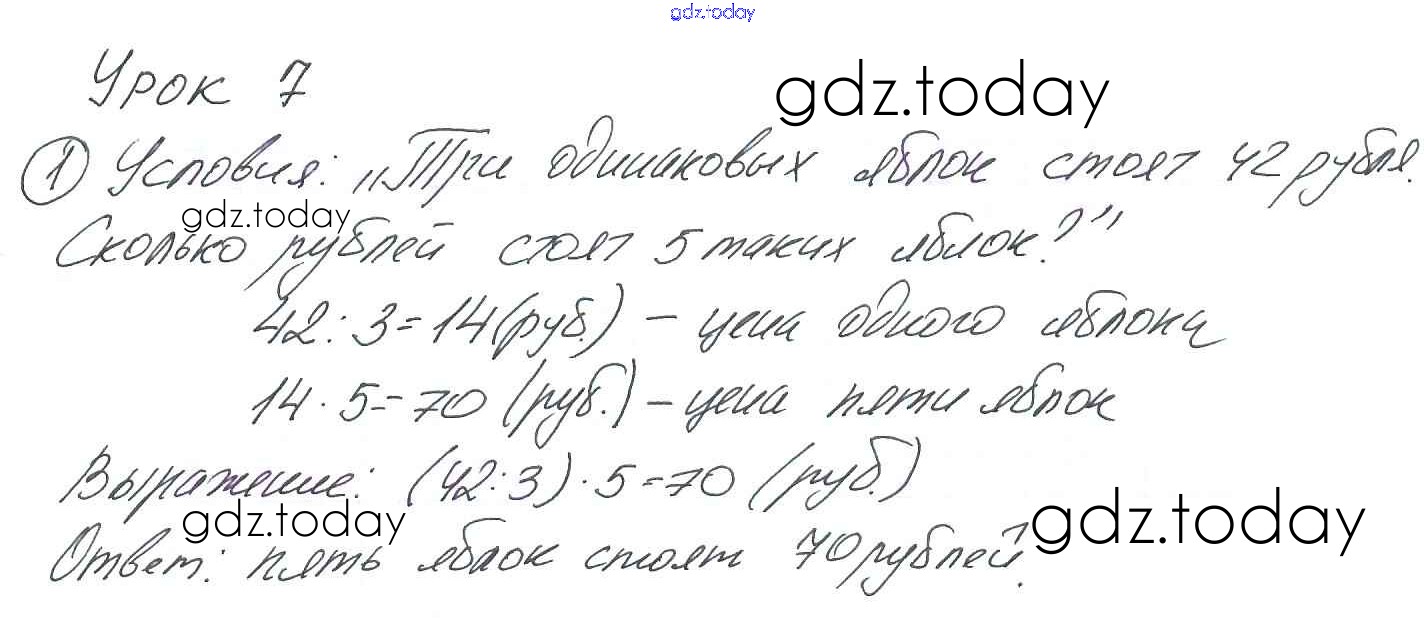 gdz.today
Урок 7
gdz.today
① Условия: „Три одинаковых яблок стоят 42 рубля.
gdz.today
Сколько рублей стоят 5 таких яблок?"
42 : 3 = 14 (руб.) – цена одного яблока
14 · 5 = 70 (руб.) – цена пяти яблок
Выражение: (42 : 3) · 5 = 70 (руб.)
gdz.today gdz.today
Ответ: пять яблок стоят 70 рублей.